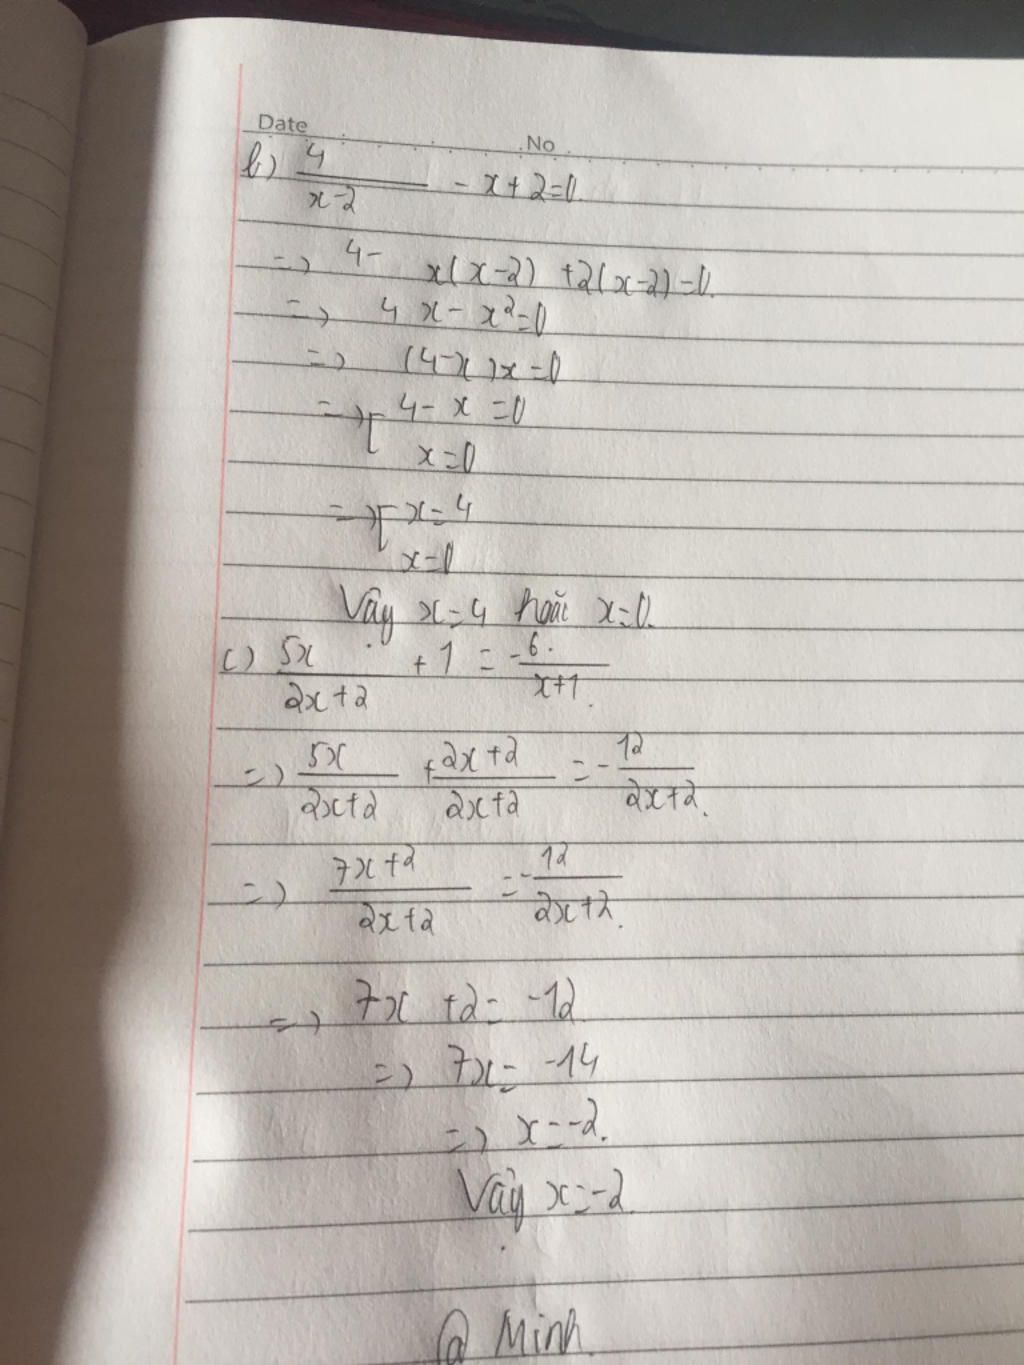 Date No
b) 4/(x-2) - x+2=0.
=> 4- x(x-2) +2(x-2)=0.
=> 4x - x²=0
=> (4-x)x=0
=> [ 4-x=0
x=0
=> [ x=4
x=0
Vậy x=4 hoặc x=0.
c) 5x/(2x+2) +1 = -6/(x+1).
=> 5x/(2x+2) + (2x+2)/(2x+2) = -12/(2x+2).
=> (7x+2)/(2x+2) = -12/(2x+2).
=> 7x +2= -12
=> 7x= -14
=> x=-2.
Vậy x=-2.
@ Minh.